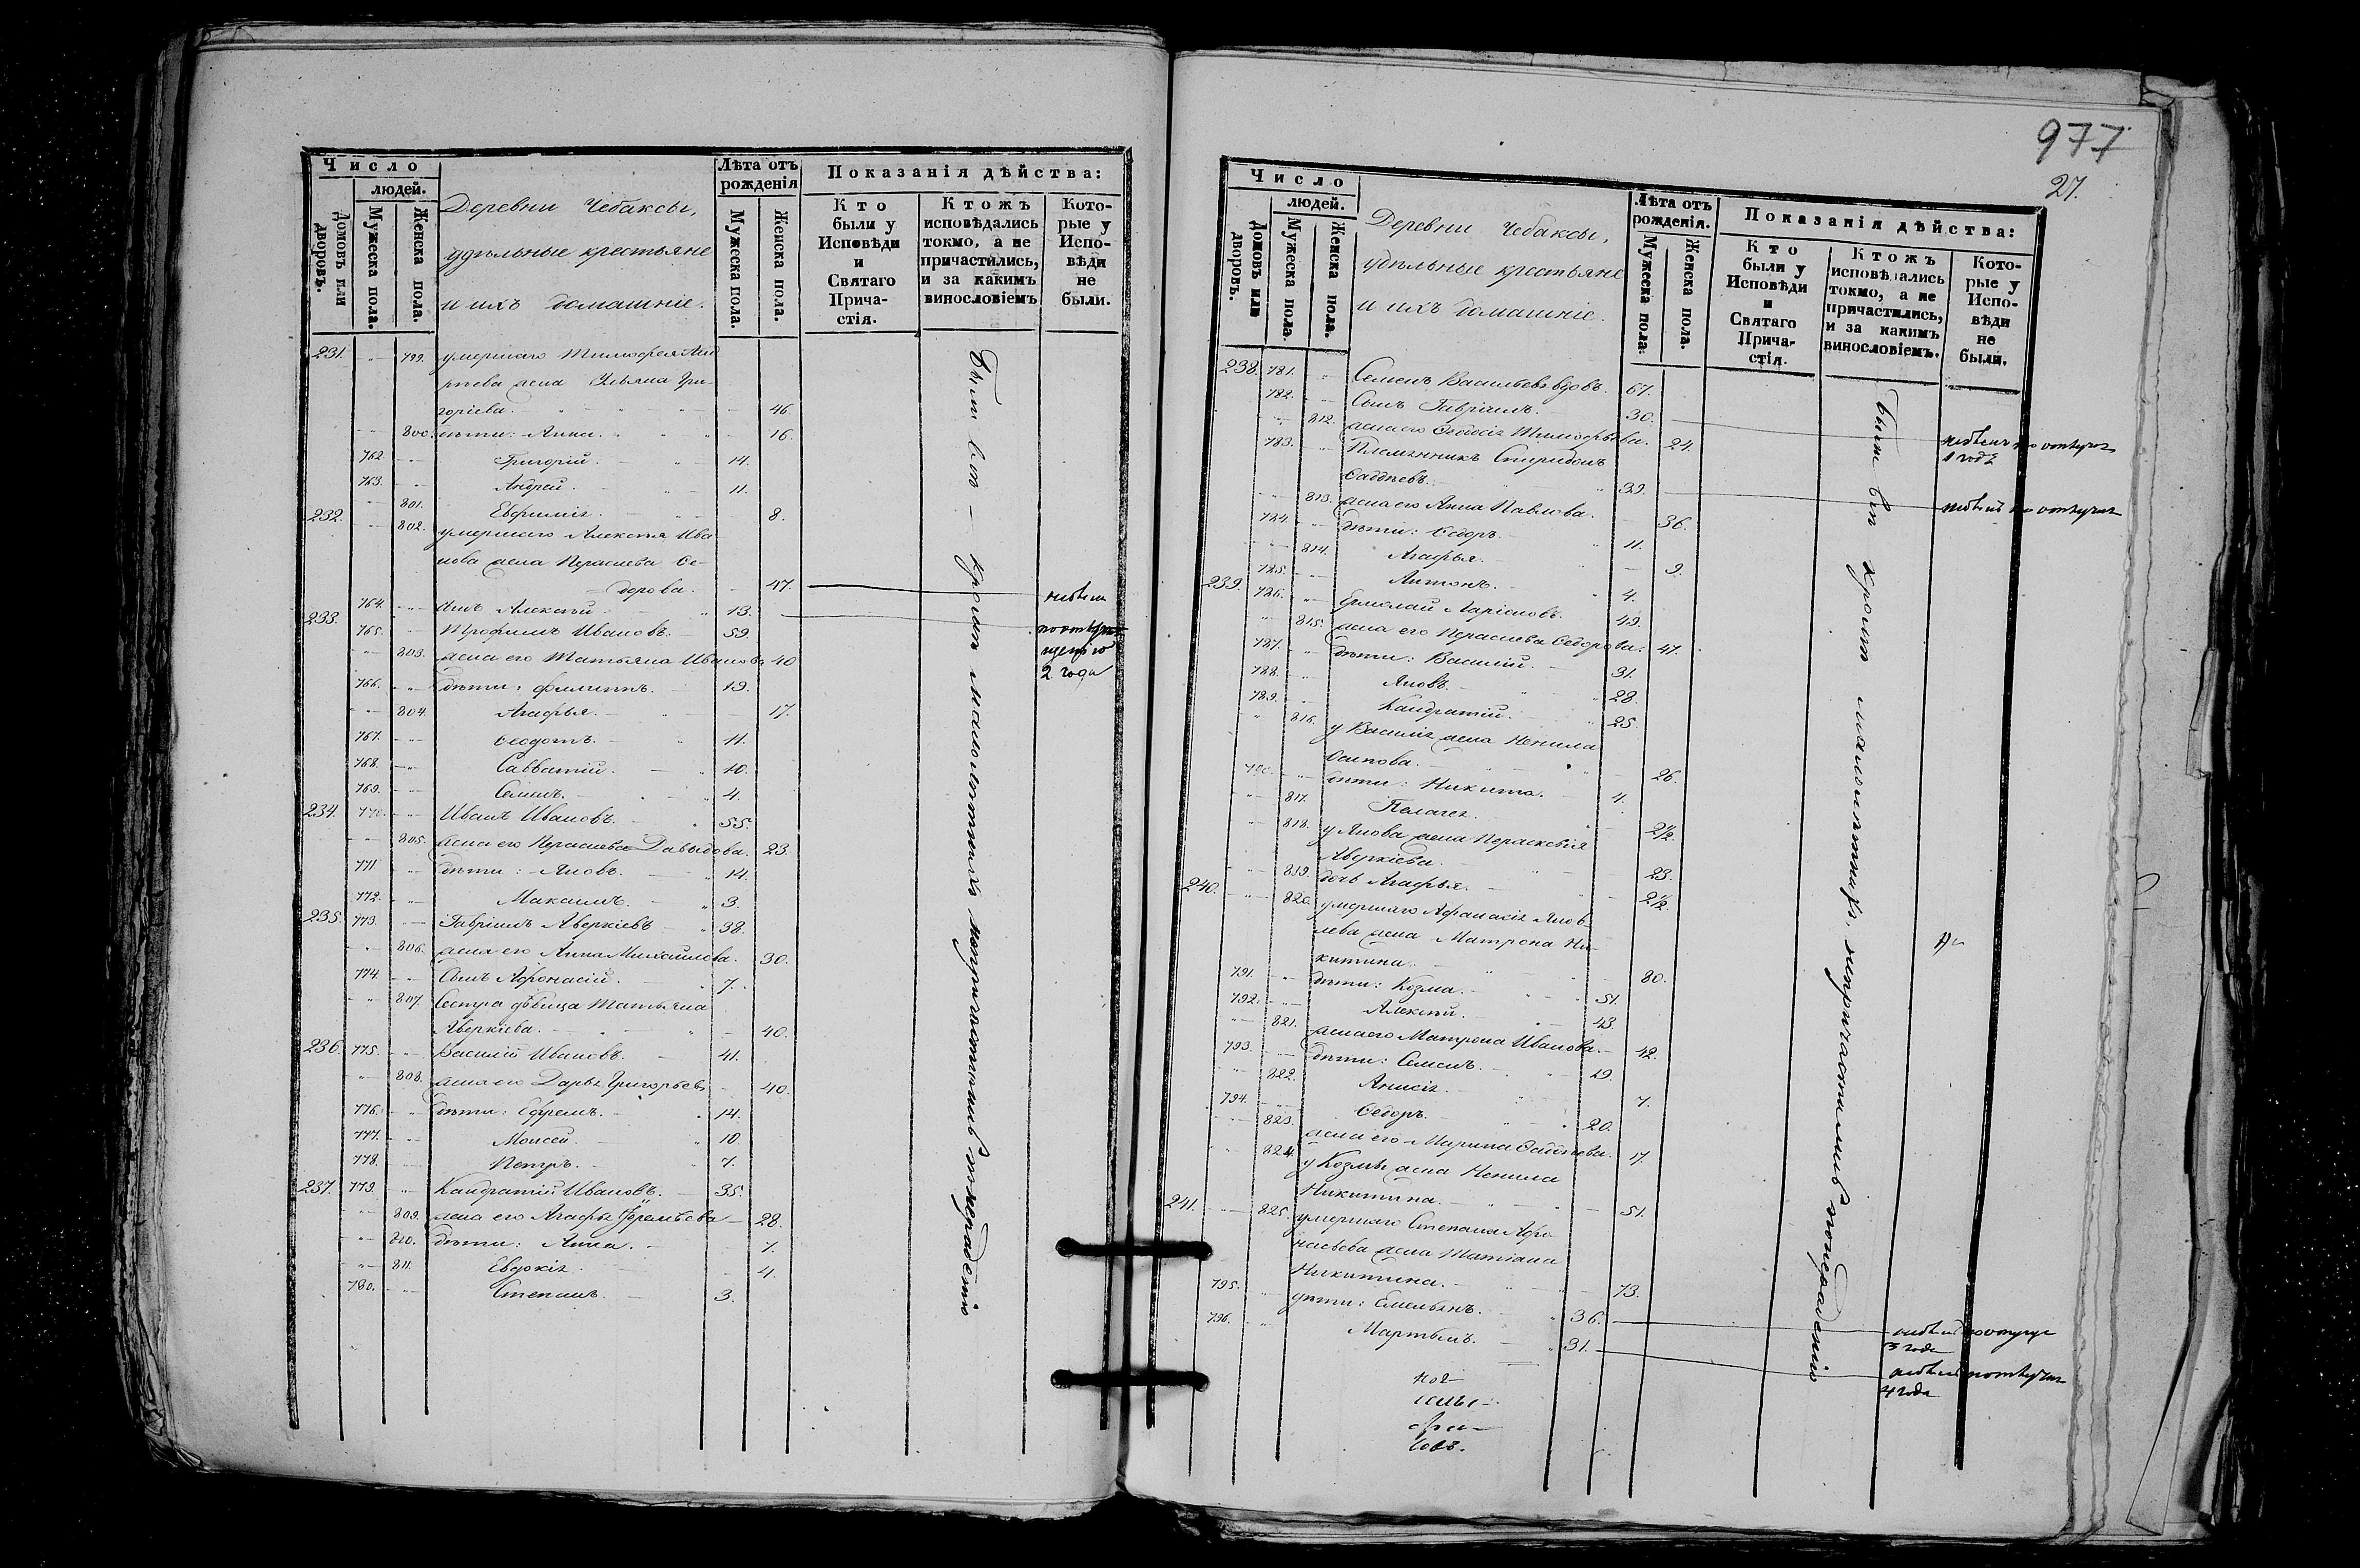 Число
людей.
Домовъ или дворовъ.
Мужеска пола.
Женска пола.
Деревни Чебаксы,
удѣльные крестьяне
и ихъ домашніе.
Лѣта отъ рожденія
Мужеска пола.
Женска пола.
Показанія дѣйства:
Кто были у Исповѣди и Святаго Причастія.
Ктожъ исповѣдались токмо, а не причастились, и за какимъ винословіемъ
Которые у Исповѣди не были.
231. 799. умершаго Тимофея
жена Ульяна Гри-
горіева. 46
800. дѣти: Анна. 16.
762. Григорій. 14.
763. Андрей. 11.
801. Евфимія. 8.
232. 802. умершаго Алексѣя Ива
нова жена Параскева Ѳе-
дорова. 47. небыла
764. сынъ Алексѣй. 13.
233. 765. Трофимъ Ивановъ. 59.
803. жена его Татьяна Иванова 40
2 года
766. дѣти: Филиппъ. 19.
804. Агафья. 17.
767. Ѳеодотъ. 11.
768. Савватій. 10.
769. Семенъ. 4.
234. 770. Иванъ Ивановъ. 55.
805. жена его Параскева Давыдова. 23.
771. дѣти: Яковъ. 14.
772. Максимъ. 3.
235. 773. Гавріилъ Аверкіевъ 38.
806. жена его Анна Михайлова. 30.
774. Сынъ Афонасій. 7.
807. Сестра дѣвица Татьяна
Аверкіева. 40.
236. 775. Василій Ивановъ. 41.
808. жена его Дарья Григорьева 40.
776. дѣти: Ефремъ. 14.
777. Моисей. 10.
778. Петръ. 7.
237. 779. Кандратій Ивановъ. 35.
809. жена его Агафья Ефремьева 28.
810. дѣти: Анна. 7.
811. Евдокія. 4.
780. Степанъ. 3.
Были вси кромѣ малолѣтнихъ непричастились по нерадѣнію
977
27.
Число
людей.
Домовъ или дворовъ.
Мужеска пола.
Женска пола.
Деревни Чебаксы,
удѣльные крестьяне
и ихъ домашніе.
Лѣта отъ рожденія.
Мужеска пола.
Женска пола.
Показанія дѣйства:
Кто были у Исповѣди и Святаго Причастія.
Ктожъ исповѣдались токмо, а не причастились, и за какимъ винословіемъ.
Которые у Исповѣди не были.
238. 781. Семенъ Васильевъ вдовъ. 67.
782. Сынъ Гавріилъ. 30. небылъ по отлучкѣ
1 годъ
812. жена его Ѳеодосія Тимофѣева. 24.
783. Племянникъ Спиридонъ
Ѳаддѣевъ. 39. небылъ по отлучкѣ
813. жена его Анна Павлова. 36.
784. дѣти: Ѳедоръ. 11.
814. Агафья. 9.
785. Антонъ. 4.
239. 786. Ермолай Ларіоновъ. 49.
815. жена его Параскева Ѳедорова. 47.
787. дѣти: Василій. 31.
788. Яковъ. 28.
789. Кандратій. 25.
816. у Василія жена Ненила
Осипова. 26.
790. дѣти: Никита. 4.
817. Палагея. 2½.
818. у Якова жена Параскевія
Аверкіева. 23.
819. дочь Агафья. 2½.
240. 820. умершаго Афанасія Яков-
лева жена Матрона Ни-
китина. 80.
791. дѣти: Козма. 51.
792. Алексѣй. 43.
821. жена его Матрона Иванова. 42.
793. дѣти: Семенъ. 19.
822. Анисія. 7.
794. Ѳедоръ. 20.
823. жена его Марина Ѳаддѣева. 17.
824. у Козмы жена Ненила
Никитина. 51.
241. 825. умершаго Степана Афо-
насьева жена Татіана
Никитина. 73.
795. дѣти: Емельянъ. 36. небылъ по отлучкѣ
3 года
796. Мартынъ. 31. небылъ по отлучкѣ
4 года
Были вси кромѣ малолѣтнихъ, непричастились по нерадѣнію